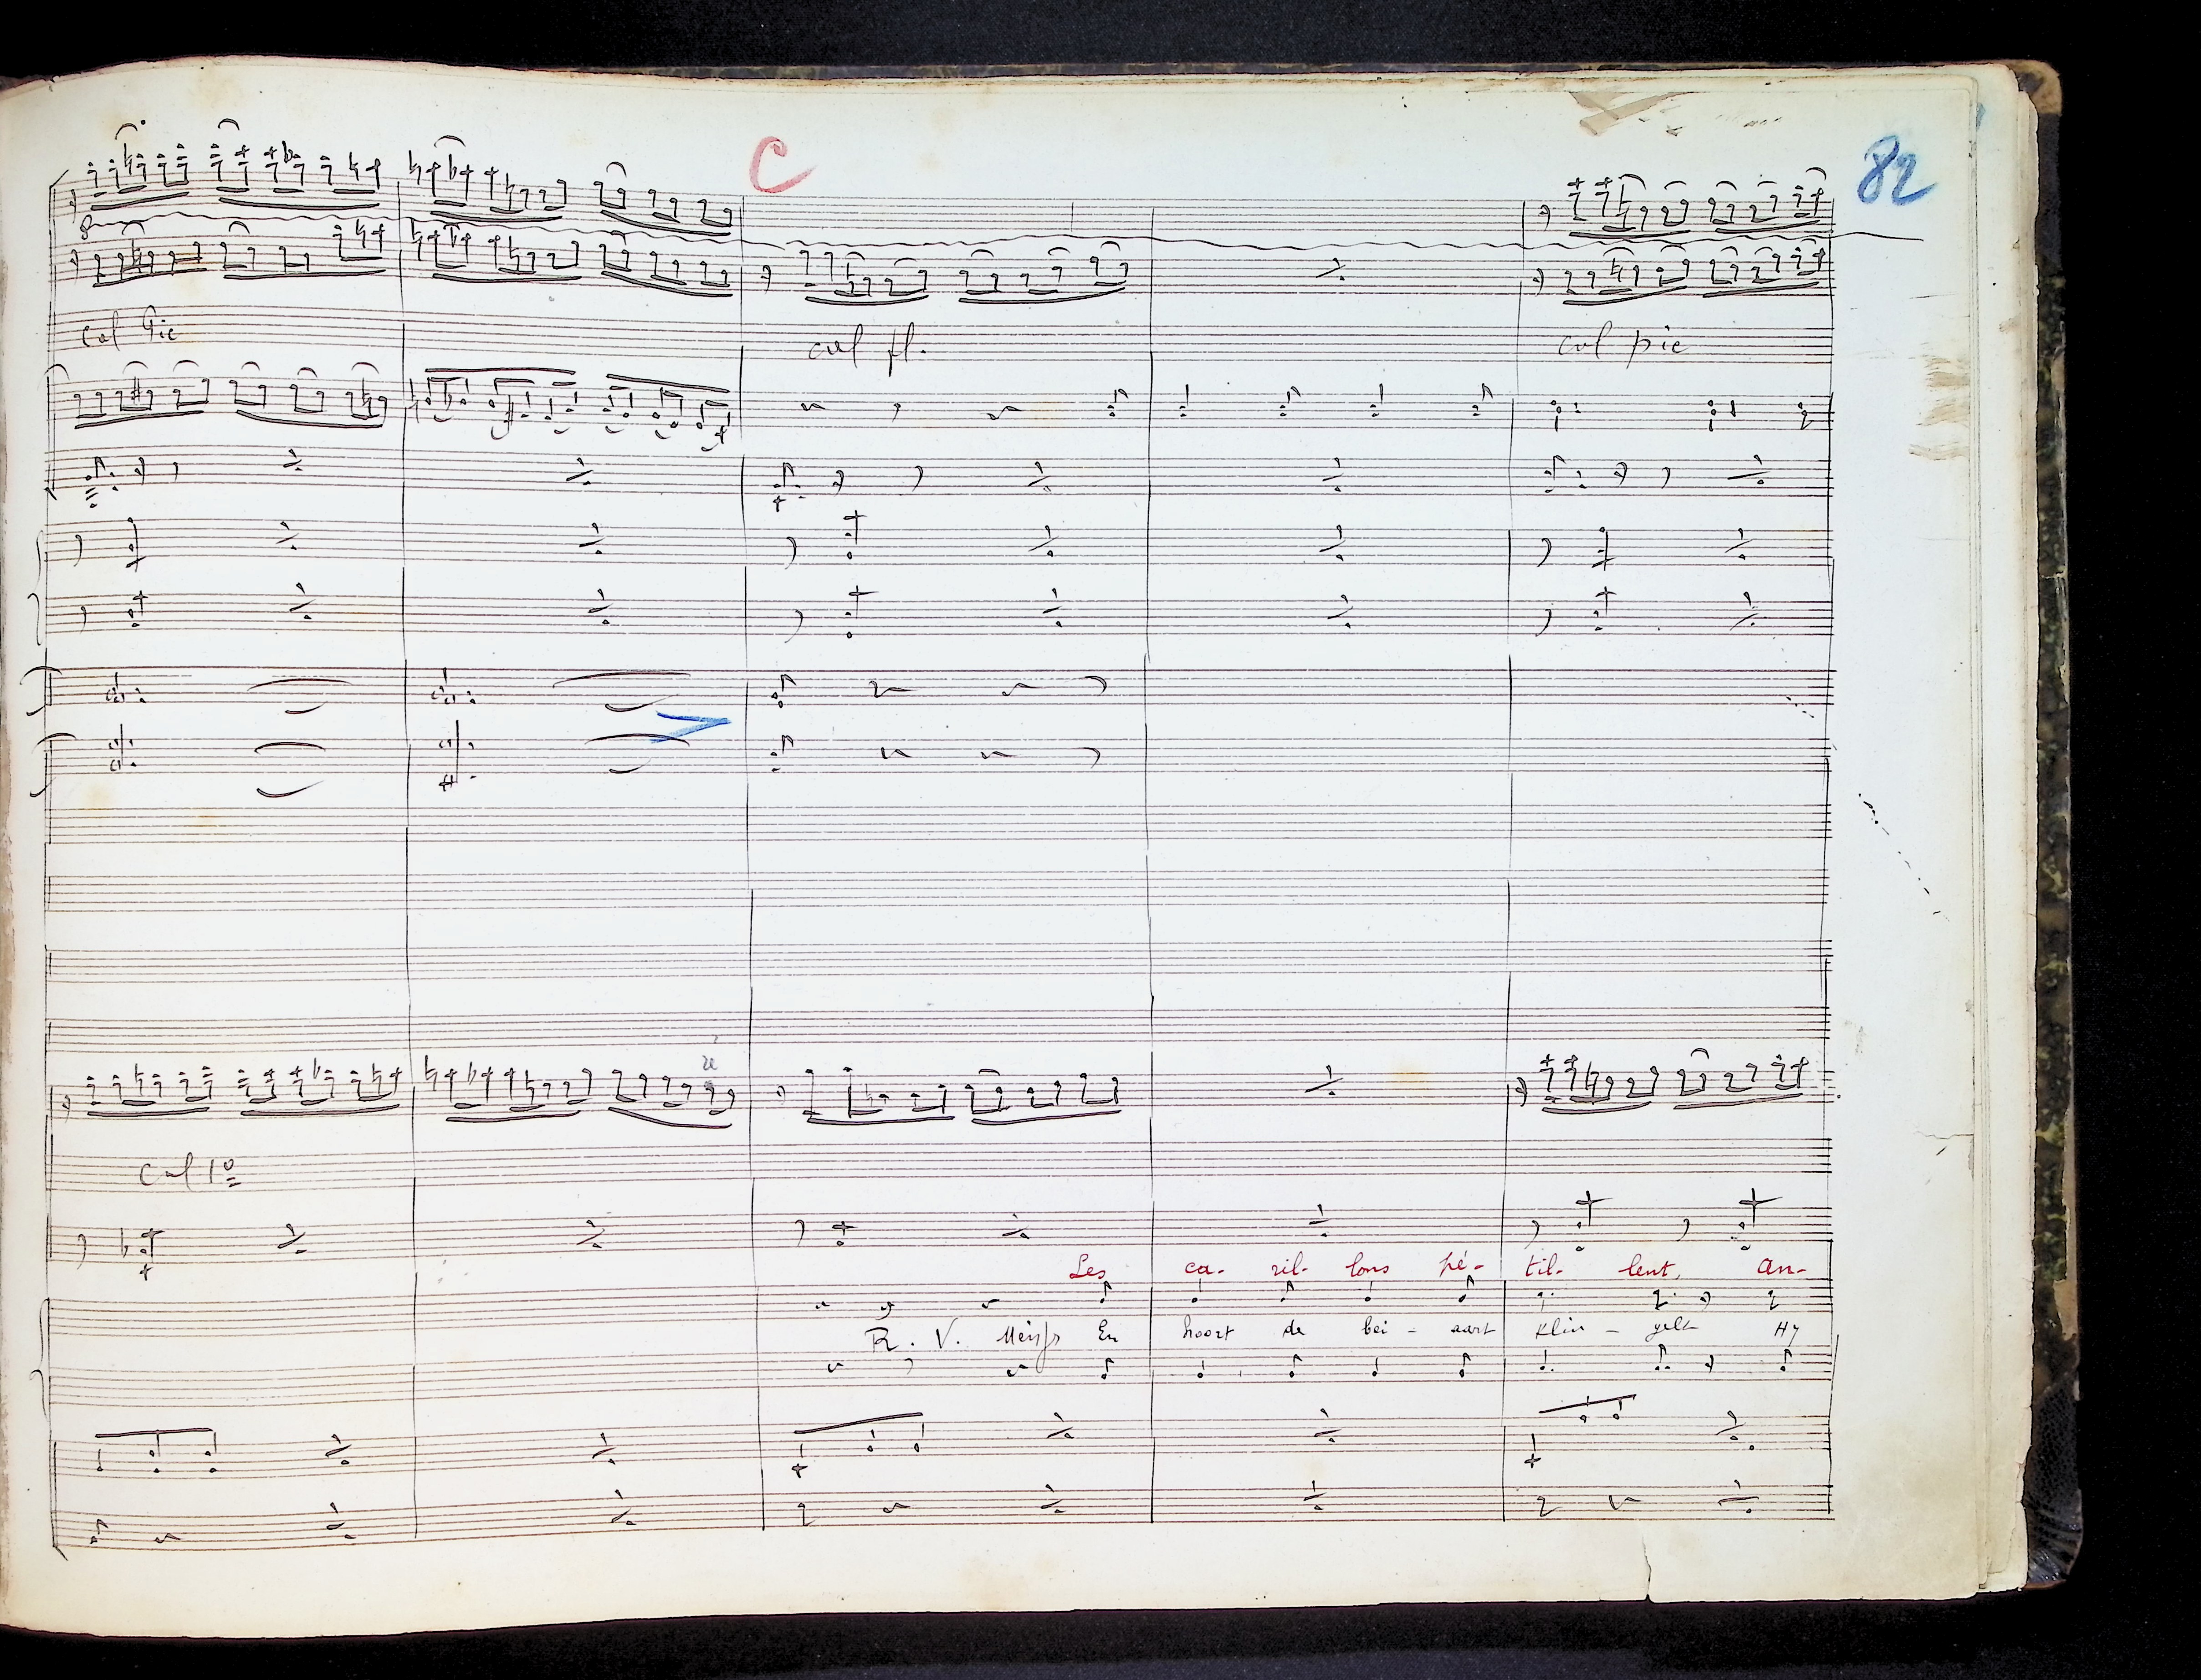 C
82
8
col Pic
col fl.
col pic
ré
Col 1º
Les ca- ril- lons pé- til- lent, an-
R. V. Meisjs En hoort de bei - aart klin - gelt Hy